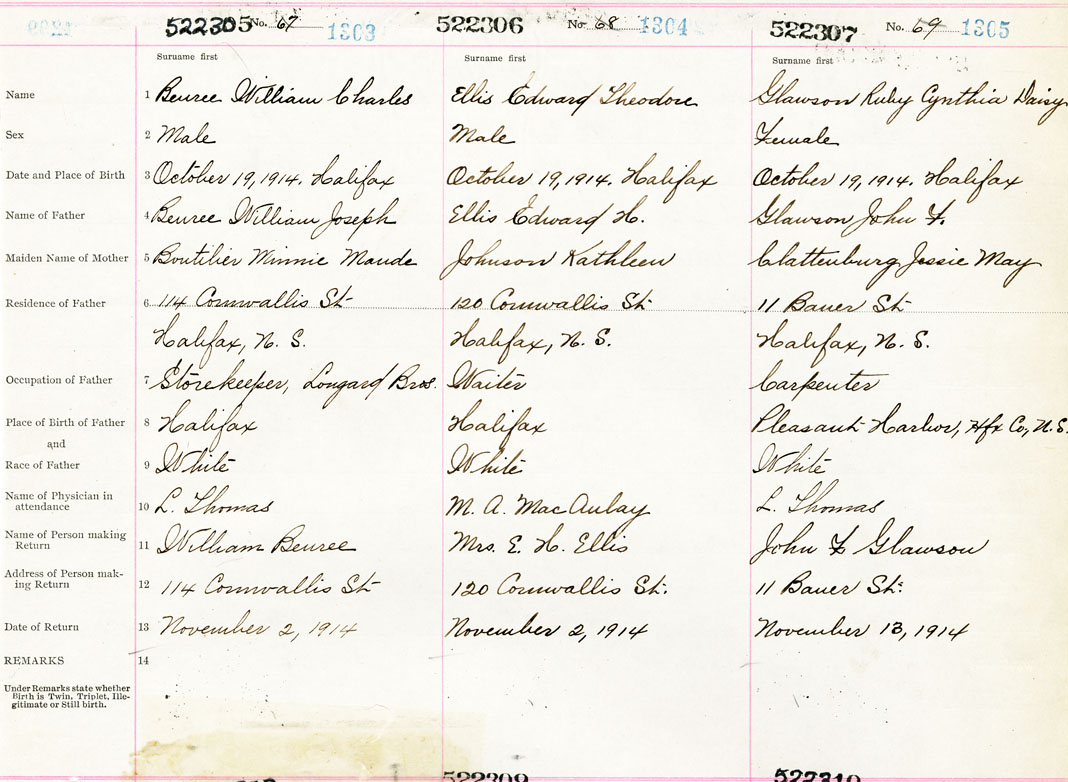 522305 No. 67 1303 522306 No. 68 1304 522307 No. 69 1305
Surname first Surname first Surname first
Name 1 Beuree William Charles Ellis Edward Theodore Glawson Ruby Cynthia Daisy
Sex 2 Male Male Female
Date and Place of Birth 3 October 19, 1914. Halifax October 19, 1914. Halifax October 19, 1914. Halifax
Name of Father 4 Beuree William Joseph Ellis Edward H. Glawson John F.
Maiden Name of Mother 5 Boutilier Minnie Maude Johnson Kathleen Clattenburg Jessie May
Residence of Father 6 114 Cornwallis St 120 Cornwallis St 11 Bauer St
Halifax, N. S. Halifax, N. S. Halifax, N. S.
Occupation of Father 7 Storekeeper, Longard Bros. Waiter Carpenter
Place of Birth of Father 8 Halifax Halifax Pleasant Harbor, Hfx Co, N.S.
and
Race of Father 9 White White White
Name of Physician in
attendance 10 L. Thomas M. A. MacAulay L. Thomas
Name of Person making
Return 11 William Beuree Mrs. E. H. Ellis John F Glawson
Address of Person mak-
ing Return 12 114 Cornwallis St 120 Cornwallis St. 11 Bauer St.
Date of Return 13 November 2, 1914 November 2, 1914 November 13, 1914
REMARKS 14
Under Remarks state whether
Birth is Twin, Triplet, Ille-
gitimate or Still birth.
522309 522310